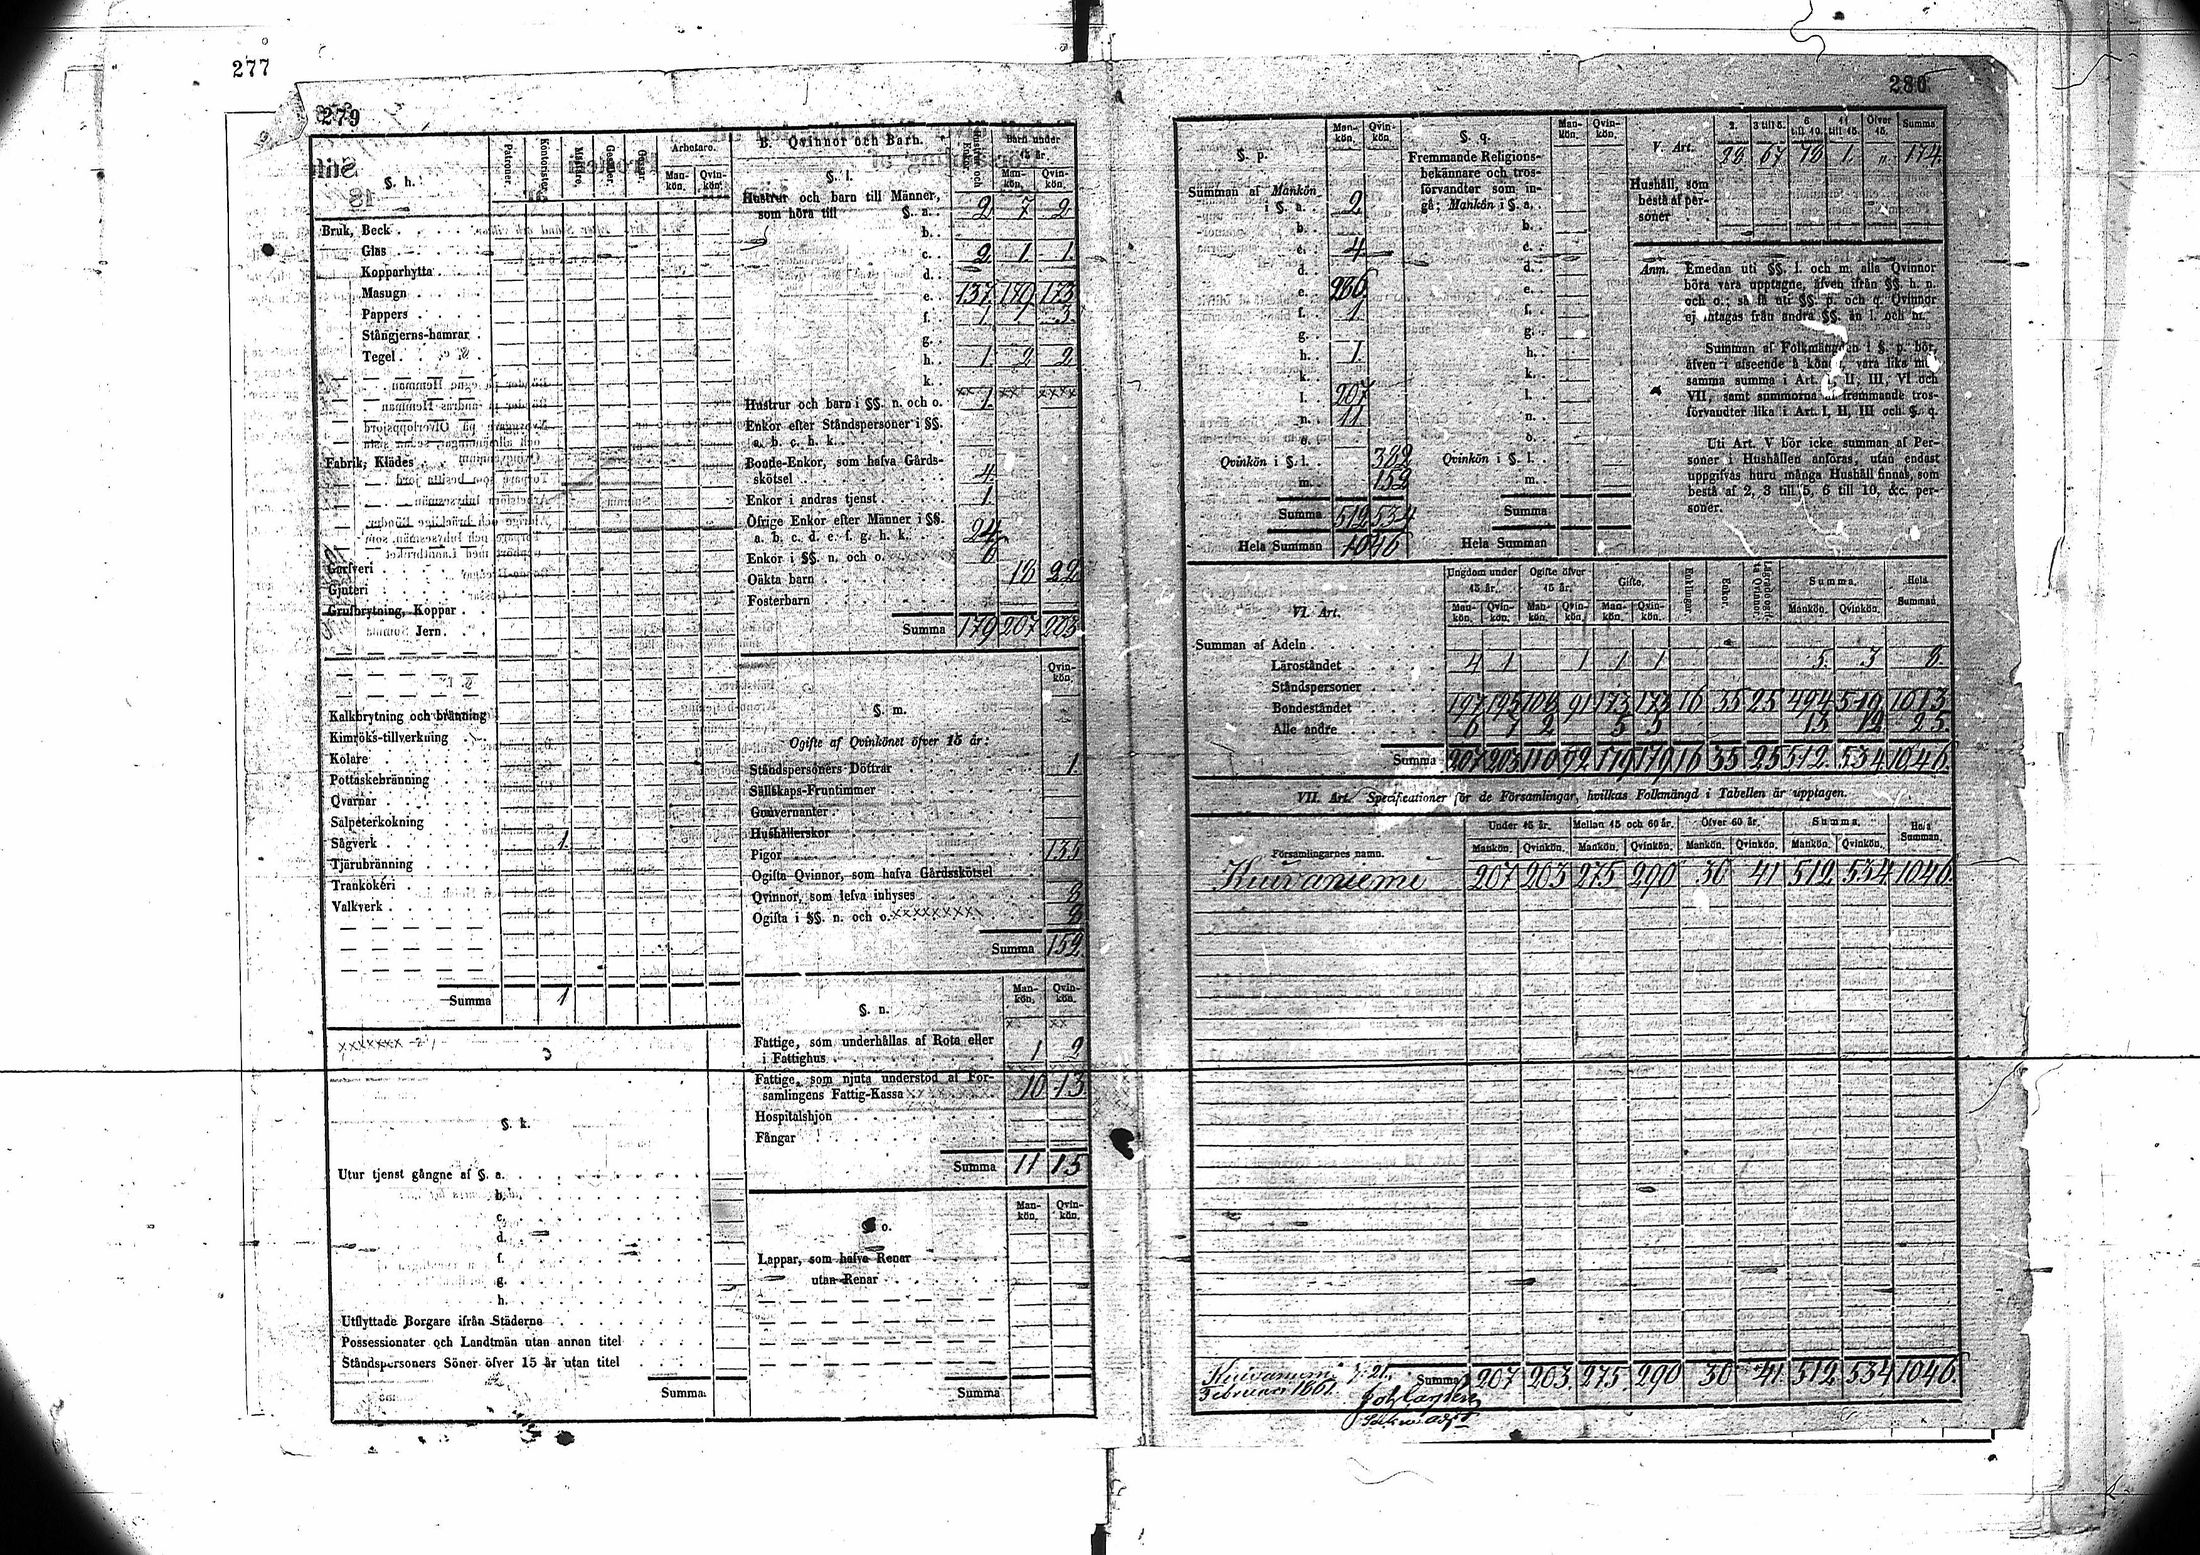 277
279
§. h.
Patroner. Kontorister. Mästare. Gesäller. Gossar.
Arbetare.
Mankön. Qvinkön.
Bruk, Beck
Glas
Kopparhytta
Masugn
Pappers
Stångjerns-hamrar
Tegel
Fabrik, Klädes
Garfveri
Gjuteri
Grufbrytning, Koppar
Jern
Kalkbrytning och bränning
Kimröks-tillverkning
Kolare
Pottaskebränning
Qvarnar
Salpeterkokning
Sågverk 1.
Tjärubränning
Trankokeri
Valkverk
Summa 1
§. k.
Utur tjenst gångne af §. a.
b.
c.
d.
f.
g.
h.
Utflyttade Borgare ifrån Städerne
Possessionater och Landtmän utan annan titel
Ståndspersoners Söner öfver 15 år utan titel
Summa
B. Qvinnor och Barn.
Hustrur och Enkor.
Barn under 15 år.
Mankön. Qvinkön.
§. l.
Hustrur och barn till Männer,
som höra till §. a. 2 7 2
b.
c. 2. 1. 1.
d.
e. 137 179 173
f. 1. 3.
g.
h. 1. 2 2
k.
Hustrur och barn i §§. n. och o. 1.
Enkor efter Ståndspersoner i §§.
a. b. c. h. k.
Bonde-Enkor, som hafva Gårds-
skötsel 4.
Enkor i andras tjenst 1.
Öfrige Enkor efter Männer i §§.
a. b. c. d. e. f. g. h. k. 24
Enkor i §§. n. och o. 6
Oäkta barn 18 22
Fosterbarn
Summa 179 207 203
Qvinkön.
§. m.
Ogifte af Qvinkönet öfver 15 år:
Ståndspersoners Döttrar 1.
Sällskaps-Fruntimmer
Gouvernanter
Hushållerskor
Pigor 135
Ogifta Qvinnor, som hafva Gårdsskötsel
Qvinnor, som lefva inhyses 8
Ogifta i §§. n. och o. 8
Summa 152
Mankön. Qvinkön.
§. n.
Fattige, som underhållas af Rota eller
i Fattighus 1 2
Fattige, som njuta understöd af För-
samlingens Fattig-Kassa 10 13
Hospitalshjon
Fångar
Summa 11 15
Mankön. Qvinkön.
§. o.
Lappar, som hafva Renar
utan Renar
Summa
280.
§. p.
Mankön. Qvinkön.
Summan af Mankön
i §. a. 2
b.
c. 4
d.
e. 286
f. 1
g.
h. 1.
k.
l. 207
n. 11.
o.
Qvinkön i §. l. 382
m. 152
Summa 512 534
Hela Summan 1046
§. q.
Mankön. Qvinkön.
Fremmande Religions-
bekännare och tros-
förvandter som in-
gå; Mankön i §. a.
b.
c.
d.
e.
f.
g.
h.
k.
l.
n.
o.
Qvinkön i §. l.
m.
Summa
Hela Summan
V. Art.
2. 3 till 5. 6 till 10. 11 till 15. Öfver 15. Summa
28 67 78 1. „ 174.
Hushåll, som
bestå af per-
soner
Anm. Emedan uti §§. l. och m. alla Qvinnor
böra vara upptagne, äfven ifrån §§. h. n.
och o.; så få uti §§. p. och q. Qvinnor
ej intagas från andra §§. än l. och m.
Summan af Folkmängden i §. p. bör,
äfven i afseende å könen, vara lika med
samma summa i Art. I, II, III, VI och
VII, samt summorna af fremmande tros-
förvandter lika i Art. I, II, III och §. q.
Uti Art. V bör icke summan af Per-
soner i Hushållen anföras, utan endast
uppgifvas huru många Hushåll finnas, som
bestå af 2, 3 till 5, 6 till 10, &c. per-
soner.
VI. Art.
Ungdom under 15 år. Ogifte öfver 15 år. Gifte. Enklingar. Enkor. Summa. Hela Summan.
Mankön. Qvinkön. Mankön. Qvinkön. Mankön. Qvinkön. Mankön. Qvinkön.
Summan af Adeln
Läroståndet 4 1 1 1 1 5. 3 8.
Ståndspersoner
Bondeståndet 197 195 108 91 173 173 16 35 25 494 519 1013
Alle andre 6 7 2 5 5 13 12 25
Summa 207 203 110 92 179 179 16 35 25 512 534 1046.
VII. Art. Specificationer för de Församlingar, hvilkas Folkmängd i Tabellen är upptagen.
Församlingarnes namn.
Under 15 år. Mellan 15 och 60 år. Öfver 60 år. Summa. Hela Summan.
Mankön. Qvinkön. Mankön. Qvinkön. Mankön. Qvinkön. Mankön. Qvinkön.
Kuivaniemi 207 203 275 290 30 41 512 534 1046.
Summa 207 203. 275. 290 30 41. 512 534 1046.
Kuivaniemi d. 21.
Februari 1861.